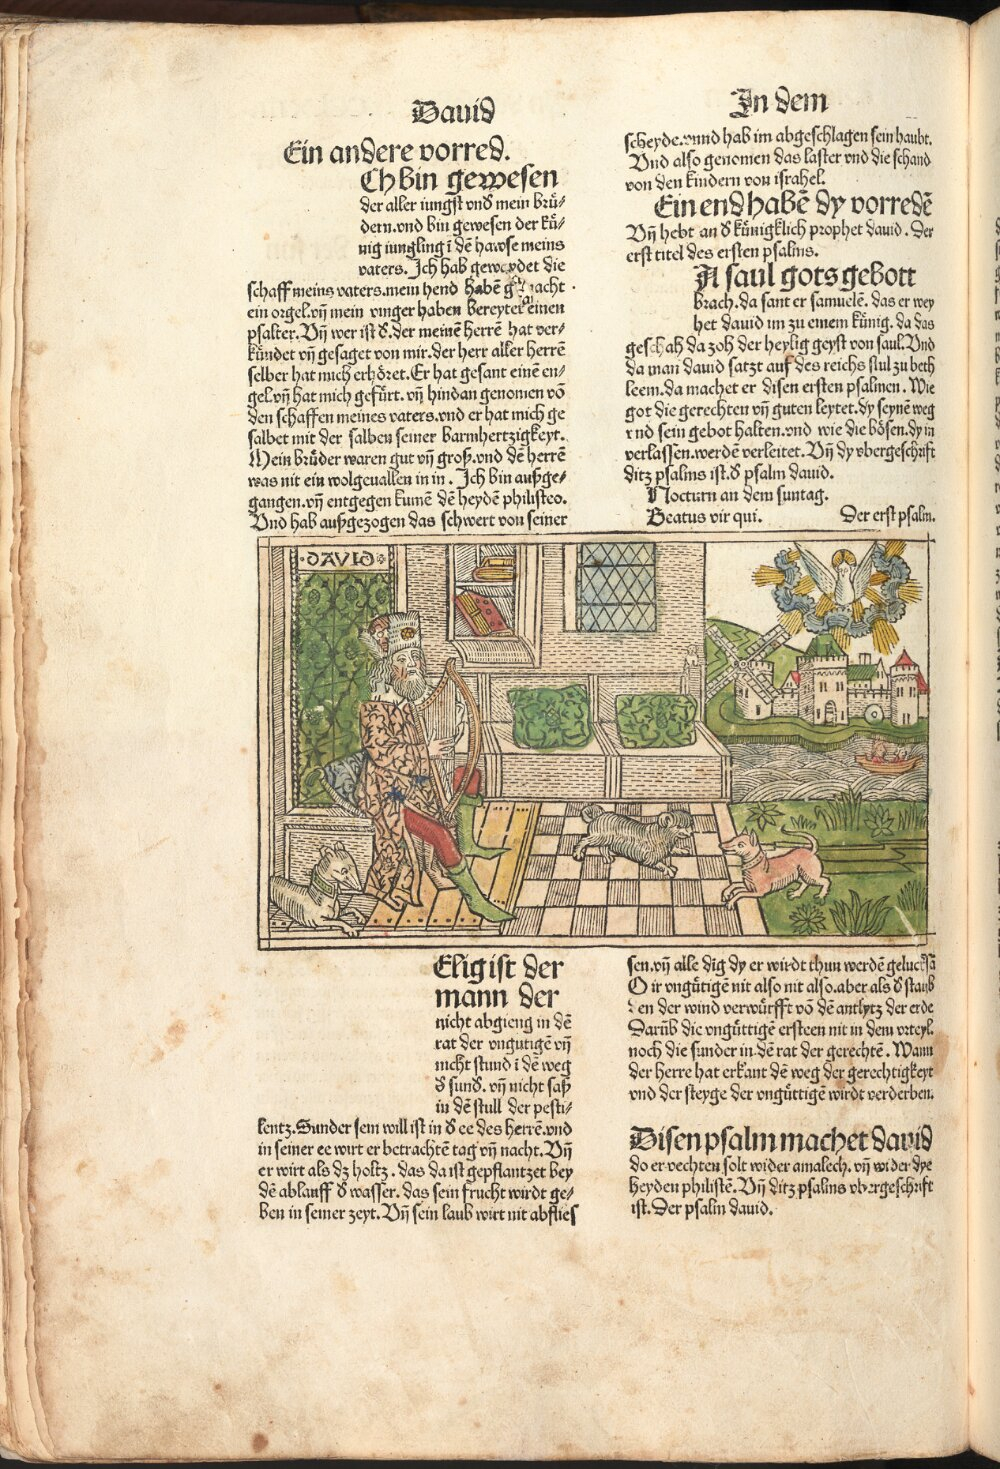 Dauid
Ein andere vorred.
Ch bin gewesen
der aller iungst vnd mein brü⸗
dern.vnd bin gewesen der kü⸗
nig iungling ī dē hawse meins
vaters. Ich hab geweydet die
schaff meins vaters.mein hend habē gemacht
ein orgel.vn̄ mein vinger haben bereytet einen
psalter. Vn̄ wer ist d̕.der meinē herrē hat ver⸗
kündet vn̄ gesaget von mir.der herr aller herrē
selber hat mich erhöret.Er hat gesant einē en⸗
gel.vn̄ hat mich gefürt. vn̄ hindan genomen vō
den schaffen meines vaters.vnd er hat mich ge
salbet mit der salben seiner barmhertzigkeyt.
Mein brüder waren gut vn̄ groß.vnd dē herrē
was nit ein wolgeuallen in in. Ich bin außge⸗
gangen.vn̄ entgegen kumē dē heydē philisteo.
Vnd hab außgezogen das schwert von seiner
In dem
scheyde.vnnd hab im abgeschlagen sein haubt.
Vnd also genomen das laster vnd die schand
von den kindern von israhel.
Ein end habē dy vorredē
Vn̄ hebt an d̕ künigklich prophet dauid. Der
erst titel des ersten psalms.
A saul gots gebott
brach.da sant er samuelē. das er wey
het dauid im zu einem künig. da das
geschah da zoh der heylig geyst von saul.Vnd
da man dauid satzt auf des reichs stul zu beth
leem.da machet er disen ersten psalmen. Wie
got die gerechten vn̄ guten leytet.dy seynē weg
vnd sein gebot halten.vnd wie die bösen.dy in
verlassen.werdē verleitet. Vn̄ dy vbergeschrift
ditz psalms ist.d̕ psalm dauid.
Nocturn an dem suntag.
Beatus vir qui. Der erst psalm.
DAVID
Elig ist der
mann der
nicht abgieng in dē
rat der vngutigē vn̄
nicht stund ī dē weg
d̕ sund̕. vn̄ nicht saß
in dē stull der pesti⸗
lentz.Sunder sein will ist in d̕ ee des herrē.vnd
in seiner ee wirt er betrachtē tag vn̄ nacht. Vn̄
er wirt als dz holtz. das da ist gepflantzet bey
dē ablauff d̕ wasser. das sein frucht wirdt ge⸗
ben in seiner zeyt. Vn̄ sein laub wirt nit abflies
sen.vn̄ alle dīg dy er wirdt thun werdē gelucksā
O ir vngütigē nit also nit also.aber als d̕ staub
den der wind verwürfft vō dē antlytz der erde
Darūb die vngüttigē ersteen nit in dem vrteyl.
noch die sunder in dē rat der gerechtē. Wann
der herre hat erkant dē weg der gerechtigkeyt
vnd der steyge der vngüttigē wirdt verderben.
Disen psalm machet dauid
do er vechten solt wider amalech. vn̄ wider dye
heyden philistē. Vn̄ ditz psalms vbergeschrift
ist. Der psalm dauid.